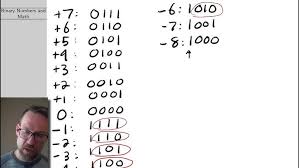 Binary Numbers and
Math
+7: 0111
+6: 0110
+5: 0101
+4: 0100
+3: 0011
+2: 0010
+1: 0001
0: 0000
-1: 1111
-2: 1110
-3: 1101
-4: 1100
-6: 1010
-7: 1001
-8: 1000